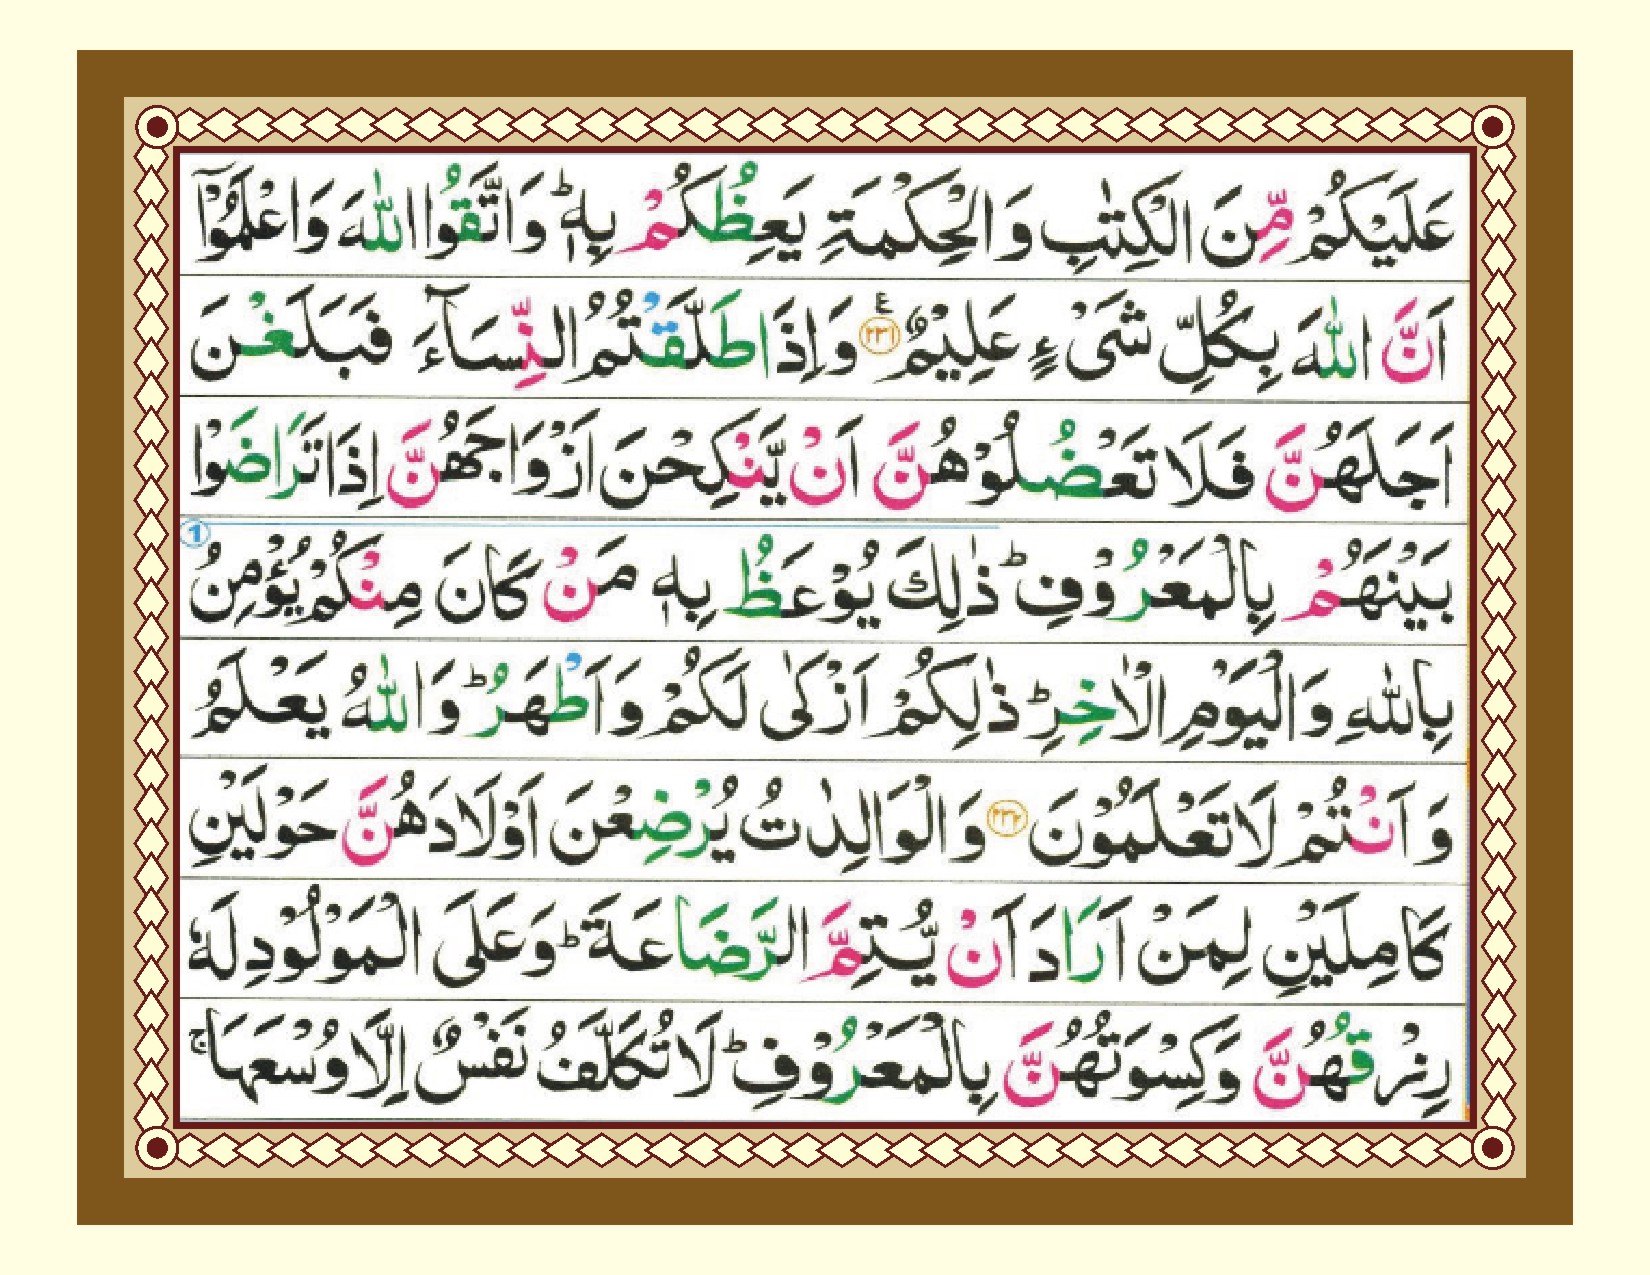 عَلَيْكُمْ مِّنَ الْكِتٰبِ وَالْحِكْمَةِ يَعِظُكُمْ بِهٖؕ وَاتَّقُوا اللّٰهَ وَاعْلَمُوْۤا
اَنَّ اللّٰهَ بِكُلِّ شَىْءٍ عَلِيْمٌ ﴿۲۳۱﴾ ع وَاِذَا طَلَّقْتُمُ النِّسَآءَ فَبَلَغْنَ
اَجَلَهُنَّ فَلَا تَعْضُلُوْهُنَّ اَنْ يَّنْكِحْنَ اَزْوَاجَهُنَّ اِذَا تَرَاضَوْا
1
بَيْنَهُمْ بِالْمَعْرُوْفِؕ ذٰلِكَ يُوْعَظُ بِهٖ مَنْ كَانَ مِنْكُمْ يُؤْمِنُ
بِاللّٰهِ وَالْيَوْمِ الْاٰخِرِؕ ذٰلِكُمْ اَزْكٰى لَكُمْ وَاَطْهَرُؕ وَاللّٰهُ يَعْلَمُ
وَاَنْتُمْ لَا تَعْلَمُوْنَ ﴿۲۳۲﴾ وَالْوَالِدٰتُ يُرْضِعْنَ اَوْلَادَهُنَّ حَوْلَيْنِ
كَامِلَيْنِ لِمَنْ اَرَادَ اَنْ يُّتِمَّ الرَّضَاعَةَؕ وَعَلَى الْمَوْلُوْدِ لَهٗ
رِزْقُهُنَّ وَكِسْوَتُهُنَّ بِالْمَعْرُوْفِؕ لَا تُكَلَّفُ نَفْسٌ اِلَّا وُسْعَهَاۚ